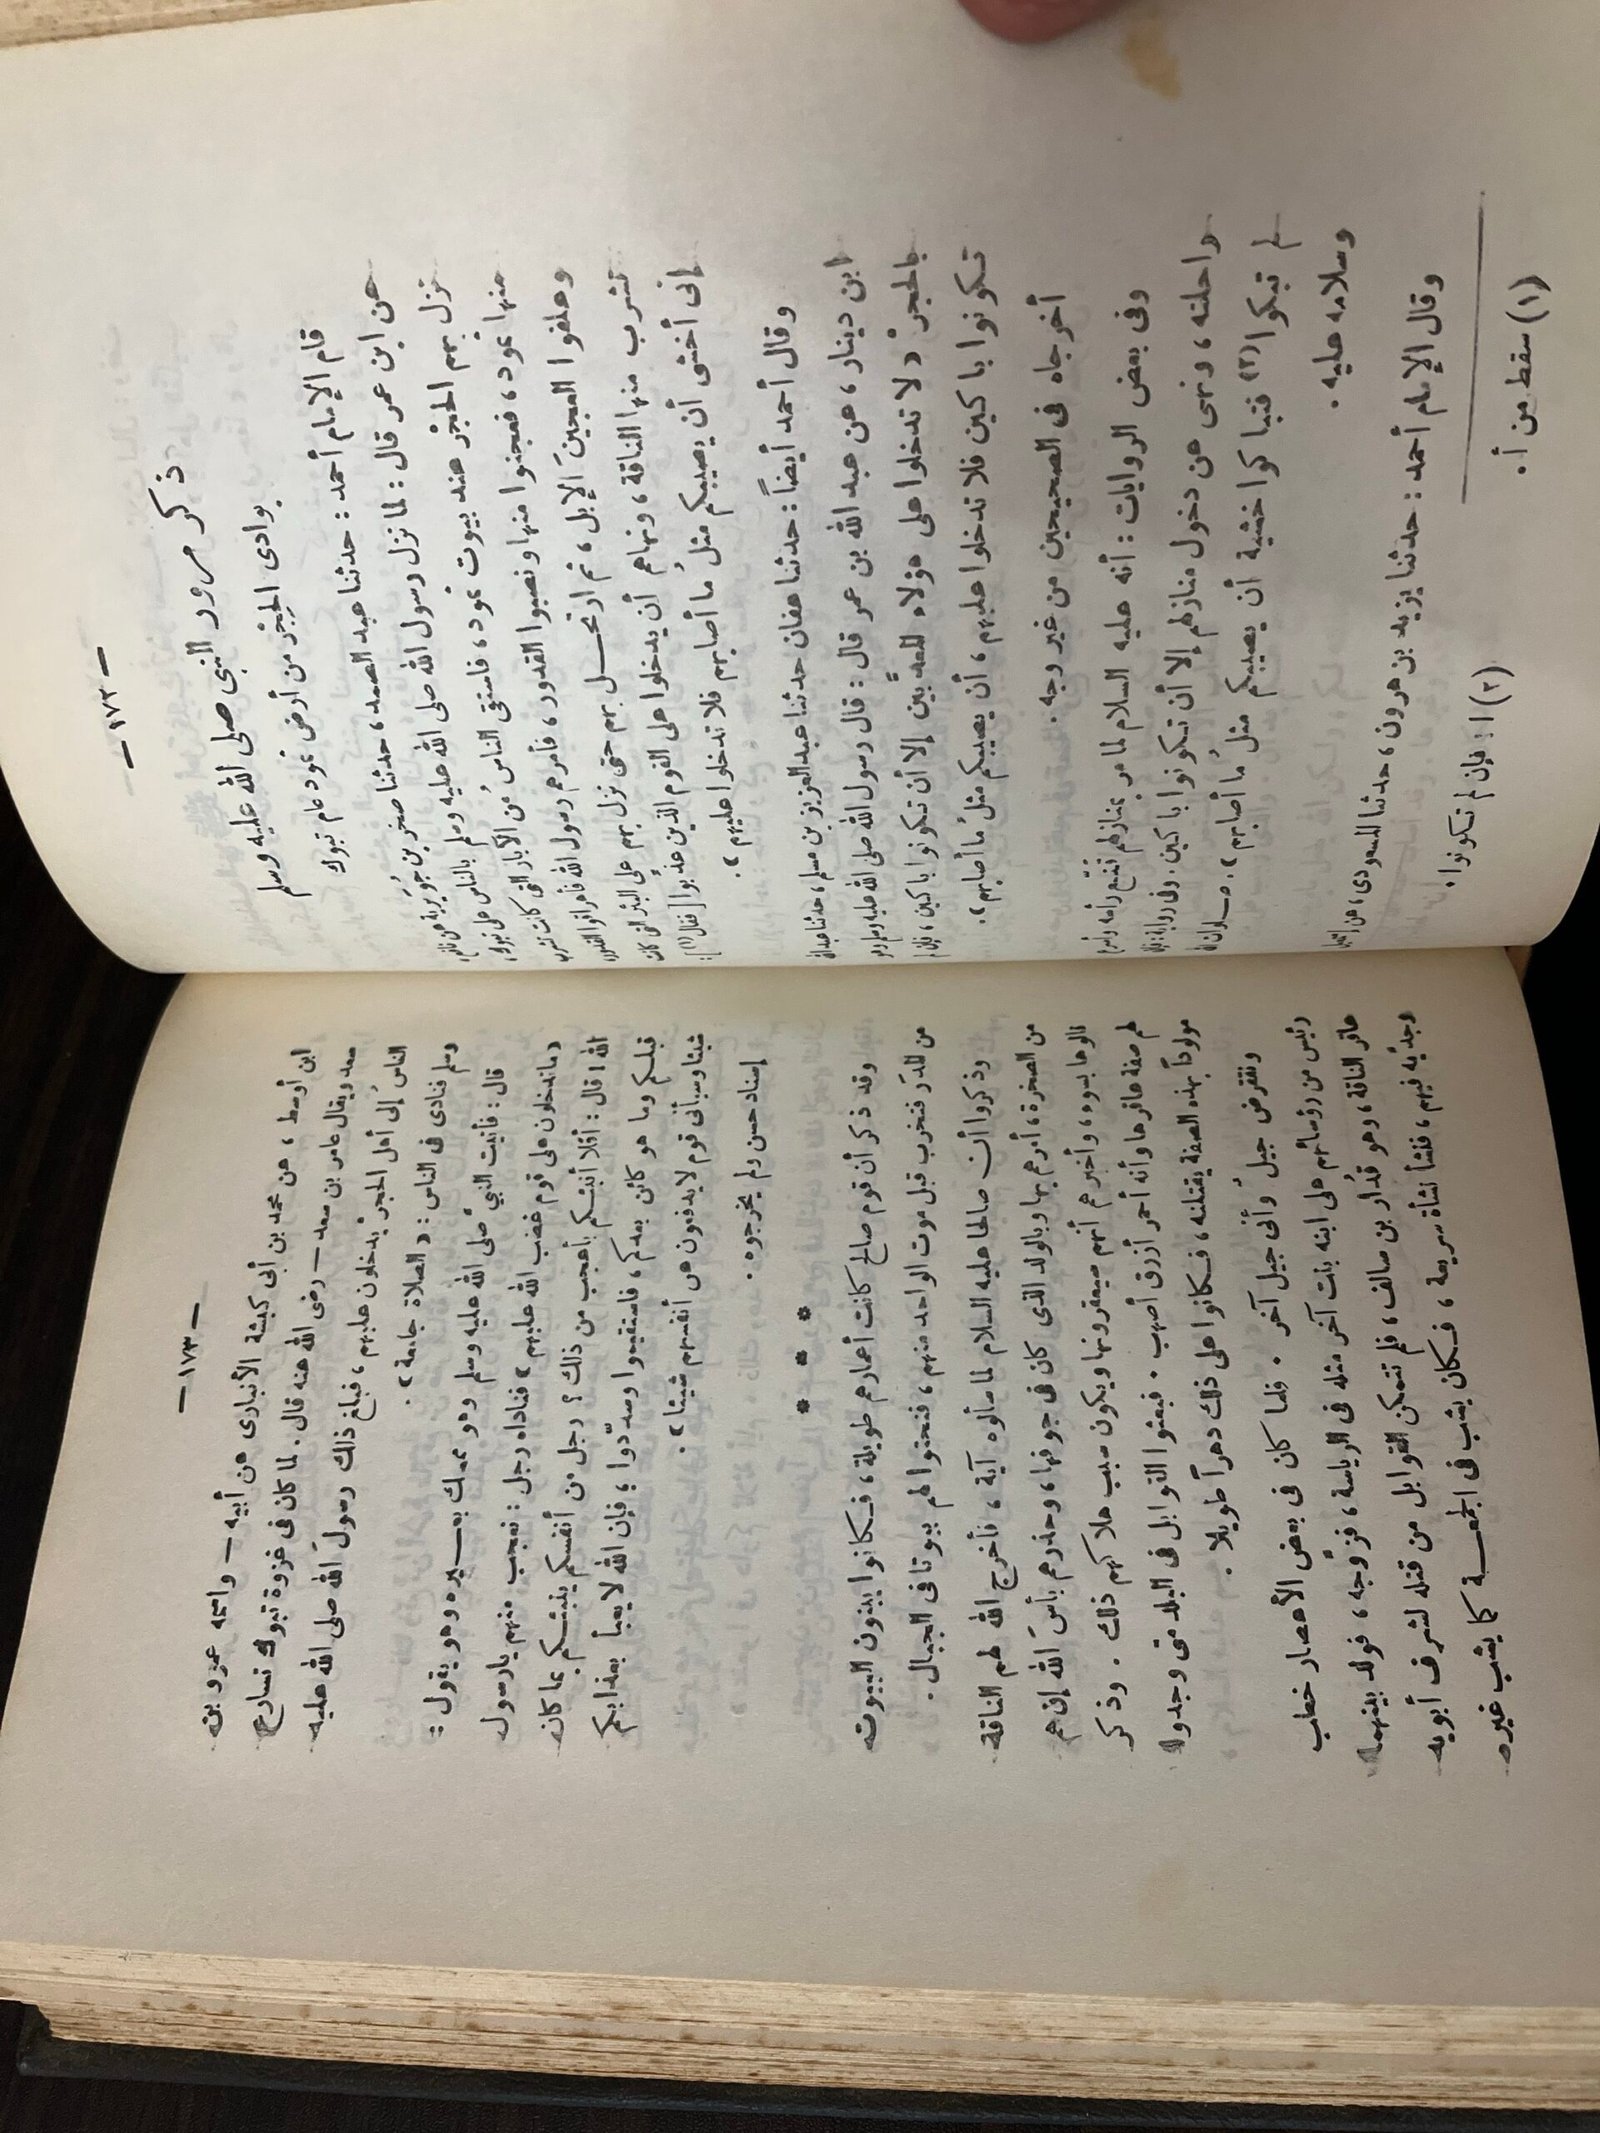 — ١٧٢ —
ذكر مرور النبى صلى الله عليه وسلم
بوادى الحِجْر من أرض ثمود عام تبوك
قام الإمام أحمد : حدثنا عبد الصمد ، حدثنا صخر بن جُوَيرية عن نافع ،
عن ابن عمر قال : لما نزل رسول الله صلى الله عليه وسلم بالناس على تبوك ،
نزل بهم الحِجْر عند بيوت ثمود ، فاستقى الناسُ من الآبار التى كانت تشرب
منها ثمود ، فعجنوا منها ونصبوا القدور ، فأمرهم رسول الله فأهراقوا القدور
وعلفوا العجينَ الإبل ، ثم ارتحـــل بهم حتى نزل بهم على البئر التى كانت
تشرب منها الناقة ، ونهاهم أن يدخلوا على القوم الذين عذّبوا [ فقال (١) ] :
إنى أخشى أن يصيبكم مثلُ ما أصابهم فلا تدخلوا عليهم » .
وقال أحمد أيضاً : حدثنا عفان حدثنا عبد العزيز بن مسلم ، حدثنا عبد الله
ابن دينار ، عن عبد الله بن عمر قال : قال رسول الله صلى الله عليه وسلم وهو
بالحِجرْ « لا تدخلوا على هؤلاء المعذَّبين إلا أن تكونوا باكين ، فإن لم
تكونوا باكين فلا تدخلوا عليهم ، أن يصيبكم مثلُ ما أصابهم » .
أخرجاه فى الصحيحين من غير وجه .
وفى بعض الروايات : أنه عليه السلام لما مر بمنازلهم تقنّع رأسه وأسرع
راحلته ، ونهى عن دخول منازلهم إلا أن تكونوا باكين . وفى رواية : فإن
لم تبكوا (٢) فتباكوا خشية أن يصيبكم مثلُ ما أصابهم » . صــلوات الله
وسلامه عليه .
وقال الإمام أحمد : حدثنا يزيد بن هرون ، حدثنا المسعودى ، عن إسماعيل
(١) سقط من أ .
(٢) ا : فإن لم تكونوا .
— ١٧٣ —
ابن أوسط ، عن محمد بن أبى كبشة الأنبارى عن أبيه — واسمه عمرو بن
سعد ويقال عامر بن سعد — رضى الله عنه قال . لما كان فى غزوة تبوك تسارع
الناسُ إلى أهل الحجرْ يدخلون عليهم ، فبلغ ذلك رسولَ الله صلى الله عليه
وسلم فنادى فى الناس : « الصلاة جامعة » .
قال : فأتيت النبيَ صلى الله عليه وسلم وهو يمسك بعــيره وهو يقول :
« ما تدخلون على قوم غضب الله عليهم » فناداه رجل : نعجب منهم يا رسول
الله ! قال : أفلا أنبئكم بأعجب من ذلك ؟ رجل من أنفسكم ينبئكم بما كان
قبلكم وما هو كائن بعدكم ، فاستقيموا وسدّدوا ؛ فإن الله لا يعبأ بعذابكم
شيئا وسيأتى قوم لا يدفعون عن أنفسهم شيئا » .
إسناد حسن ولم يخرجوه .
* * *
وقد ذكر أن قوم صالح كانت أعمارهم طويلة ، فـكانوا يبنون البيوت
من المدَر فتخرب قبل موت الواحد منهم ، فنحتوا لهم بيوتا فى الجبال .
وذكروا أن صالحا عليه السلام لما سألوه آية ، فأخرج الله لهم الناقة
من الصخرة ، أمرهم بها وبالولد الذى كان فى جوفها ، وحذرهم بأسَ الله إن هم
نالوها بسوء ، وأخبرهم أنهم سيعقرونها ويكون سبب هلاكهم ذلك . وذكر
لهم صفة عاقرها وأنه أحمر أزرق أصهب . فبعثوا القوابل فى البلد متى وجدوا
مولوداً بهذه الصفة يقتلنه ، فـكانوا على ذلك دهراً طويلا .
وانقرض جيلٌ وأتى جيل آخر . فلما كان فى بعض الأعصار خطب
رئيس من رؤسائهم على ابنه بنت آخر مثله فى الرياسة ، فزوَّجه ، فولد بينهما
عاقر الناقة ، وهو قُدار بن سالف ، فلم تتمكن القوابل من قتله لشرف أبويه
وجدَّيه فيهم ، فنشأ نشأة سريعة ، فـكان يشب فى الجمعــة كما يشب غيره